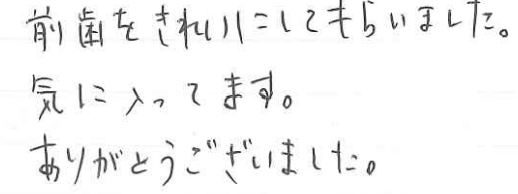 前歯をきれいにしてもらいました。
気に入ってます。
ありがとうございました。